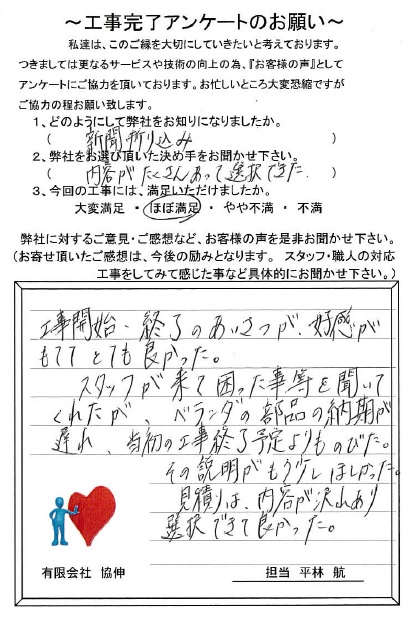 ～工事完了アンケートのお願い～
私達は、このご縁を大切にしていきたいと考えております。
つきましては更なるサービスや技術の向上の為、『お客様の声』として
アンケートにご協力を頂いております。お忙しいところ大変恐縮ですが
ご協力の程お願い致します。
1、どのようにして弊社をお知りになりましたか。
(新聞折り込み)
2、弊社をお選び頂いた決め手をお聞かせ下さい。
(内容がたくさんあって選択できた.)
3、今回の工事には、満足いただけましたか。
大変満足 ・ ほぼ満足 ・ やや不満 ・ 不満
弊社に対するご意見・ご感想など、お客様の声を是非お聞かせ下さい。
(お寄せ頂いたご感想は、今後の励みとなります。 スタッフ・職人の対応
工事をしてみて感じた事など具体的にお聞かせ下さい。)
工事開始・終了のあいさつが、好感が
もててとても良かった。
スタッフが来て困った事等を聞いて
くれたが、ベランダの部品の納期が
遅れ、当初の工事終了予定よりものびた。
その説明がもう少しほしかった。
見積りは、内容が沢山あり
選択できて良かった。
有限会社 協伸
担当 平林 航